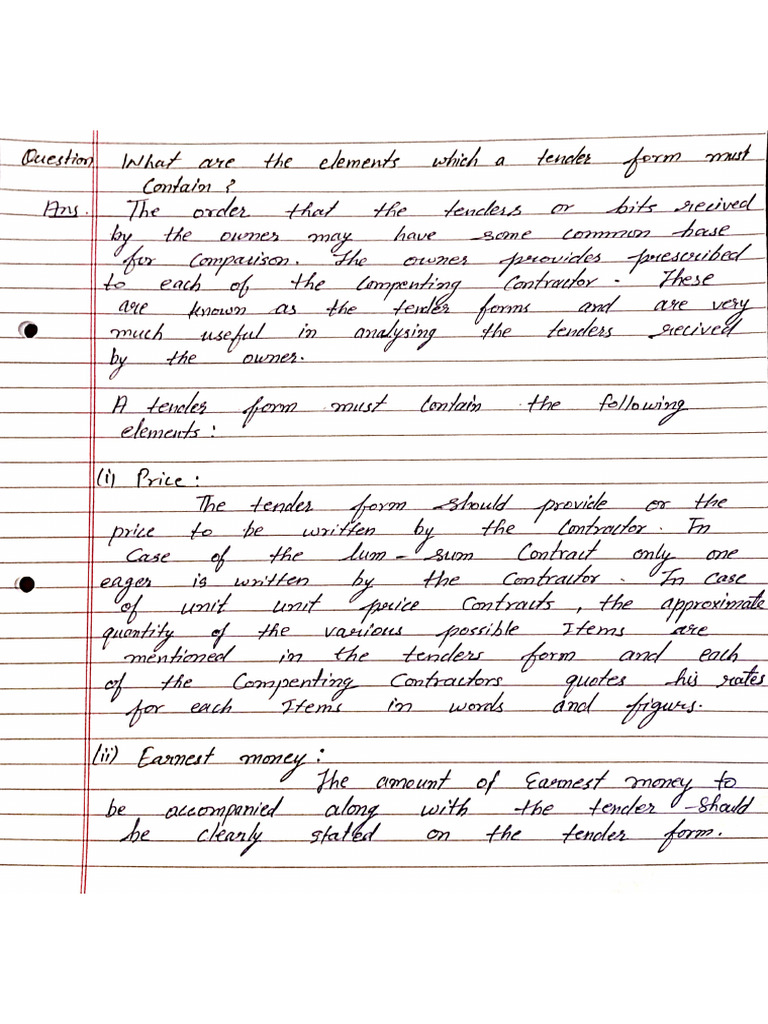 Question What are the elements which a tender form must
Contain ?
Ans. The order that the tenders or bits recived
by the owner may have some common base
for Comparison. The owner provides prescribed
to each of the Compenting Contractor. These
are known as the tender forms and are very
much useful in analysing the tenders recived
by the owner.
A tender form must Contain the following
elements :
(i) Price :
The tender form should provide or the
price to be written by the Contractor. In
Case of the lum-sum Contract only one
eager is written by the Contractor. In case
of unit unit price Contracts, the approximate
quantity of the various possible Items are
mentioned in the tenders form and each
of the Compenting Contractors quotes his rates
for each Items in words and figurs.
(ii) Earnest money :
The amount of Earnest money to
be accompanied along with the tender should
be clearly stated on the tender form.